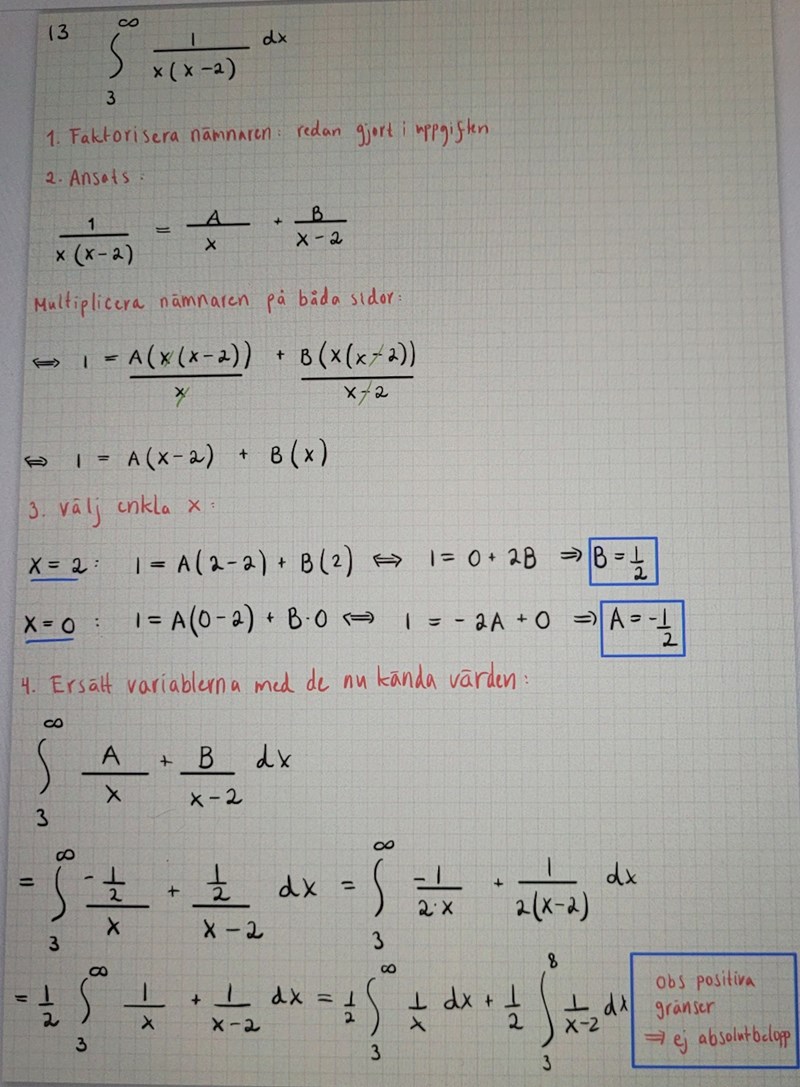 13 ∫₃^∞ 1/(x(x-2)) dx
1. Faktorisera nämnaren: redan gjort i uppgiften
2. Ansats:
1/(x(x-2)) = A/x + B/(x-2)
Multiplicera nämnaren på båda sidor:
⇔ 1 = A(x(x-2))/x + B(x(x-2))/(x-2)
⇔ 1 = A(x-2) + B(x)
3. Välj enkla x:
x=2: 1 = A(2-2) + B(2) ⇔ 1 = 0 + 2B ⇒ B = 1/2
x=0: 1 = A(0-2) + B·0 ⇔ 1 = -2A + 0 ⇒ A = -1/2
4. Ersätt variablerna med de nu kända värden:
∫₃^∞ A/x + B/(x-2) dx
= ∫₃^∞ (-1/2)/x + (1/2)/(x-2) dx = ∫₃^∞ -1/(2·x) + 1/(2(x-2)) dx
= 1/2 ∫₃^∞ 1/x + 1/(x-2) dx = 1/2 ∫₃^∞ 1/x dx + 1/2 ∫₃^8 1/(x-2) dx
obs positiva
gränser
⇒ ej absolutbelopp